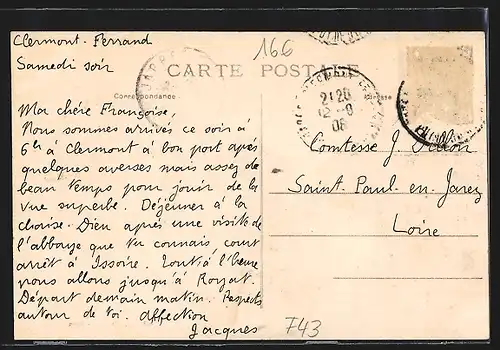 Clermont-Ferrand
166
Samedi soir
CARTE POSTALE
Correspondance
Adresse
Ma chère Françoise,
Nous sommes arrivés ce soir à
6h à Clermont à bon port après
quelques averses mais assez de
beau temps pour jouir de la
vue superbe. Déjeuner à la
chaise. Dieu après une visite de
l'abbaye que tu connais, court
arrêt à Issoire. Tout à l'heure
nous allons jusqu'à Royat.
Départ demain matin. Respects
autour de toi. affection
Jacques
2120
12-9
08
Comtesse J.
Saint-Paul-en-Jarez
Loire
F43